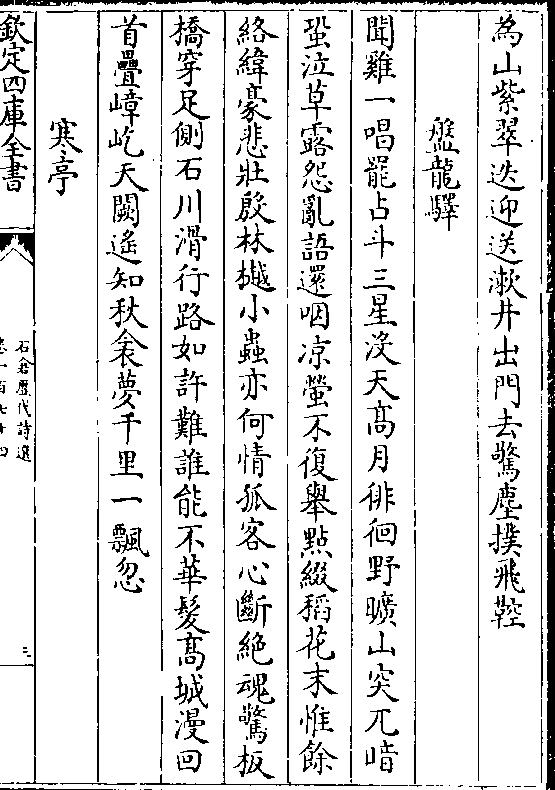 為山紫翠迭迎送漱井出門去驚塵撲飛鞚
盤龍驛
聞雞一唱罷占斗三星没天髙月徘徊野曠山突兀喑
蛩泣草露怨亂語還咽凉螢不復舉㸃綴稻花末惟餘
絡緯豪悲壯殷林樾小蟲亦何情孤客心斷絶魂驚板
橋穿足側石川滑行路如許難誰能不華髮髙城漫回
首疊嶂屹天闕遙知秋衾夢千里一飄忽
寒亭
欽定四庫全書
石倉歷代詩選
卷一百七十四
三